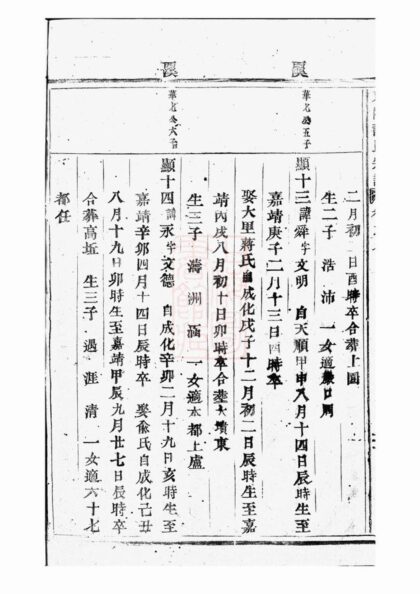 二月初 日酉時卒合葬上園
生二子 浩 沛 一女適 口周
華九公五子
顯十三諱舜字文明 自天順甲申八月十四日辰時生至
嘉靖庚 二月十三日酉時卒
娶大里蔣氏自成化戊子十二月初二日辰時生至嘉
靖丙戌八月初十日卯時卒合葬大墳東
生三子 濤 洲 涵 一女適本都上盧
華九公六子
顯十四諱永字文德 自成化辛卯二月十九日亥時生至
嘉靖辛卯四月十四日辰時卒 娶俞氏自成化己丑
八月十九日卯時生至嘉靖甲辰九月廿七日辰時卒
合葬高坵 生三子 遇 涯 清 一女適六十七
都任